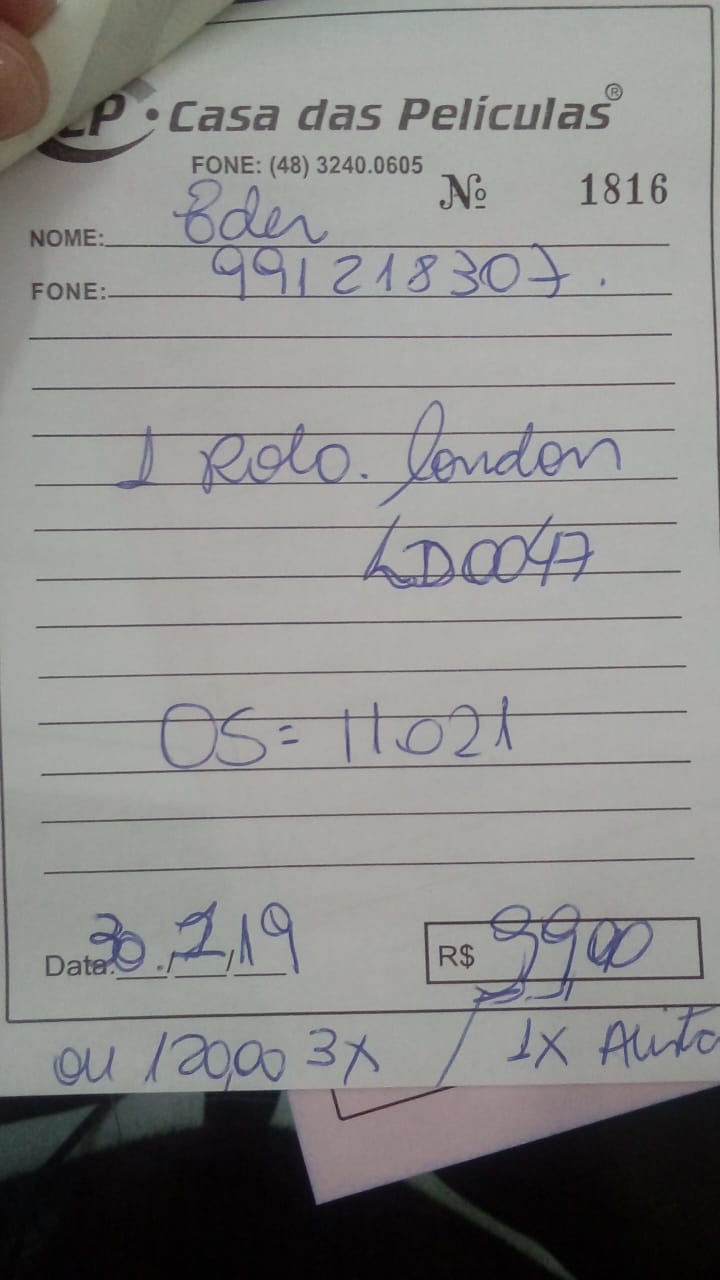 CP • Casa das Películas®
FONE: (48) 3240.0605
Nº 1816
NOME: Eder
FONE: 991218307.
1 Rolo. London
LD0047
OS = 11.021
Data: 30/7/19
R$ 9900
ou 120,00 3X / 1X